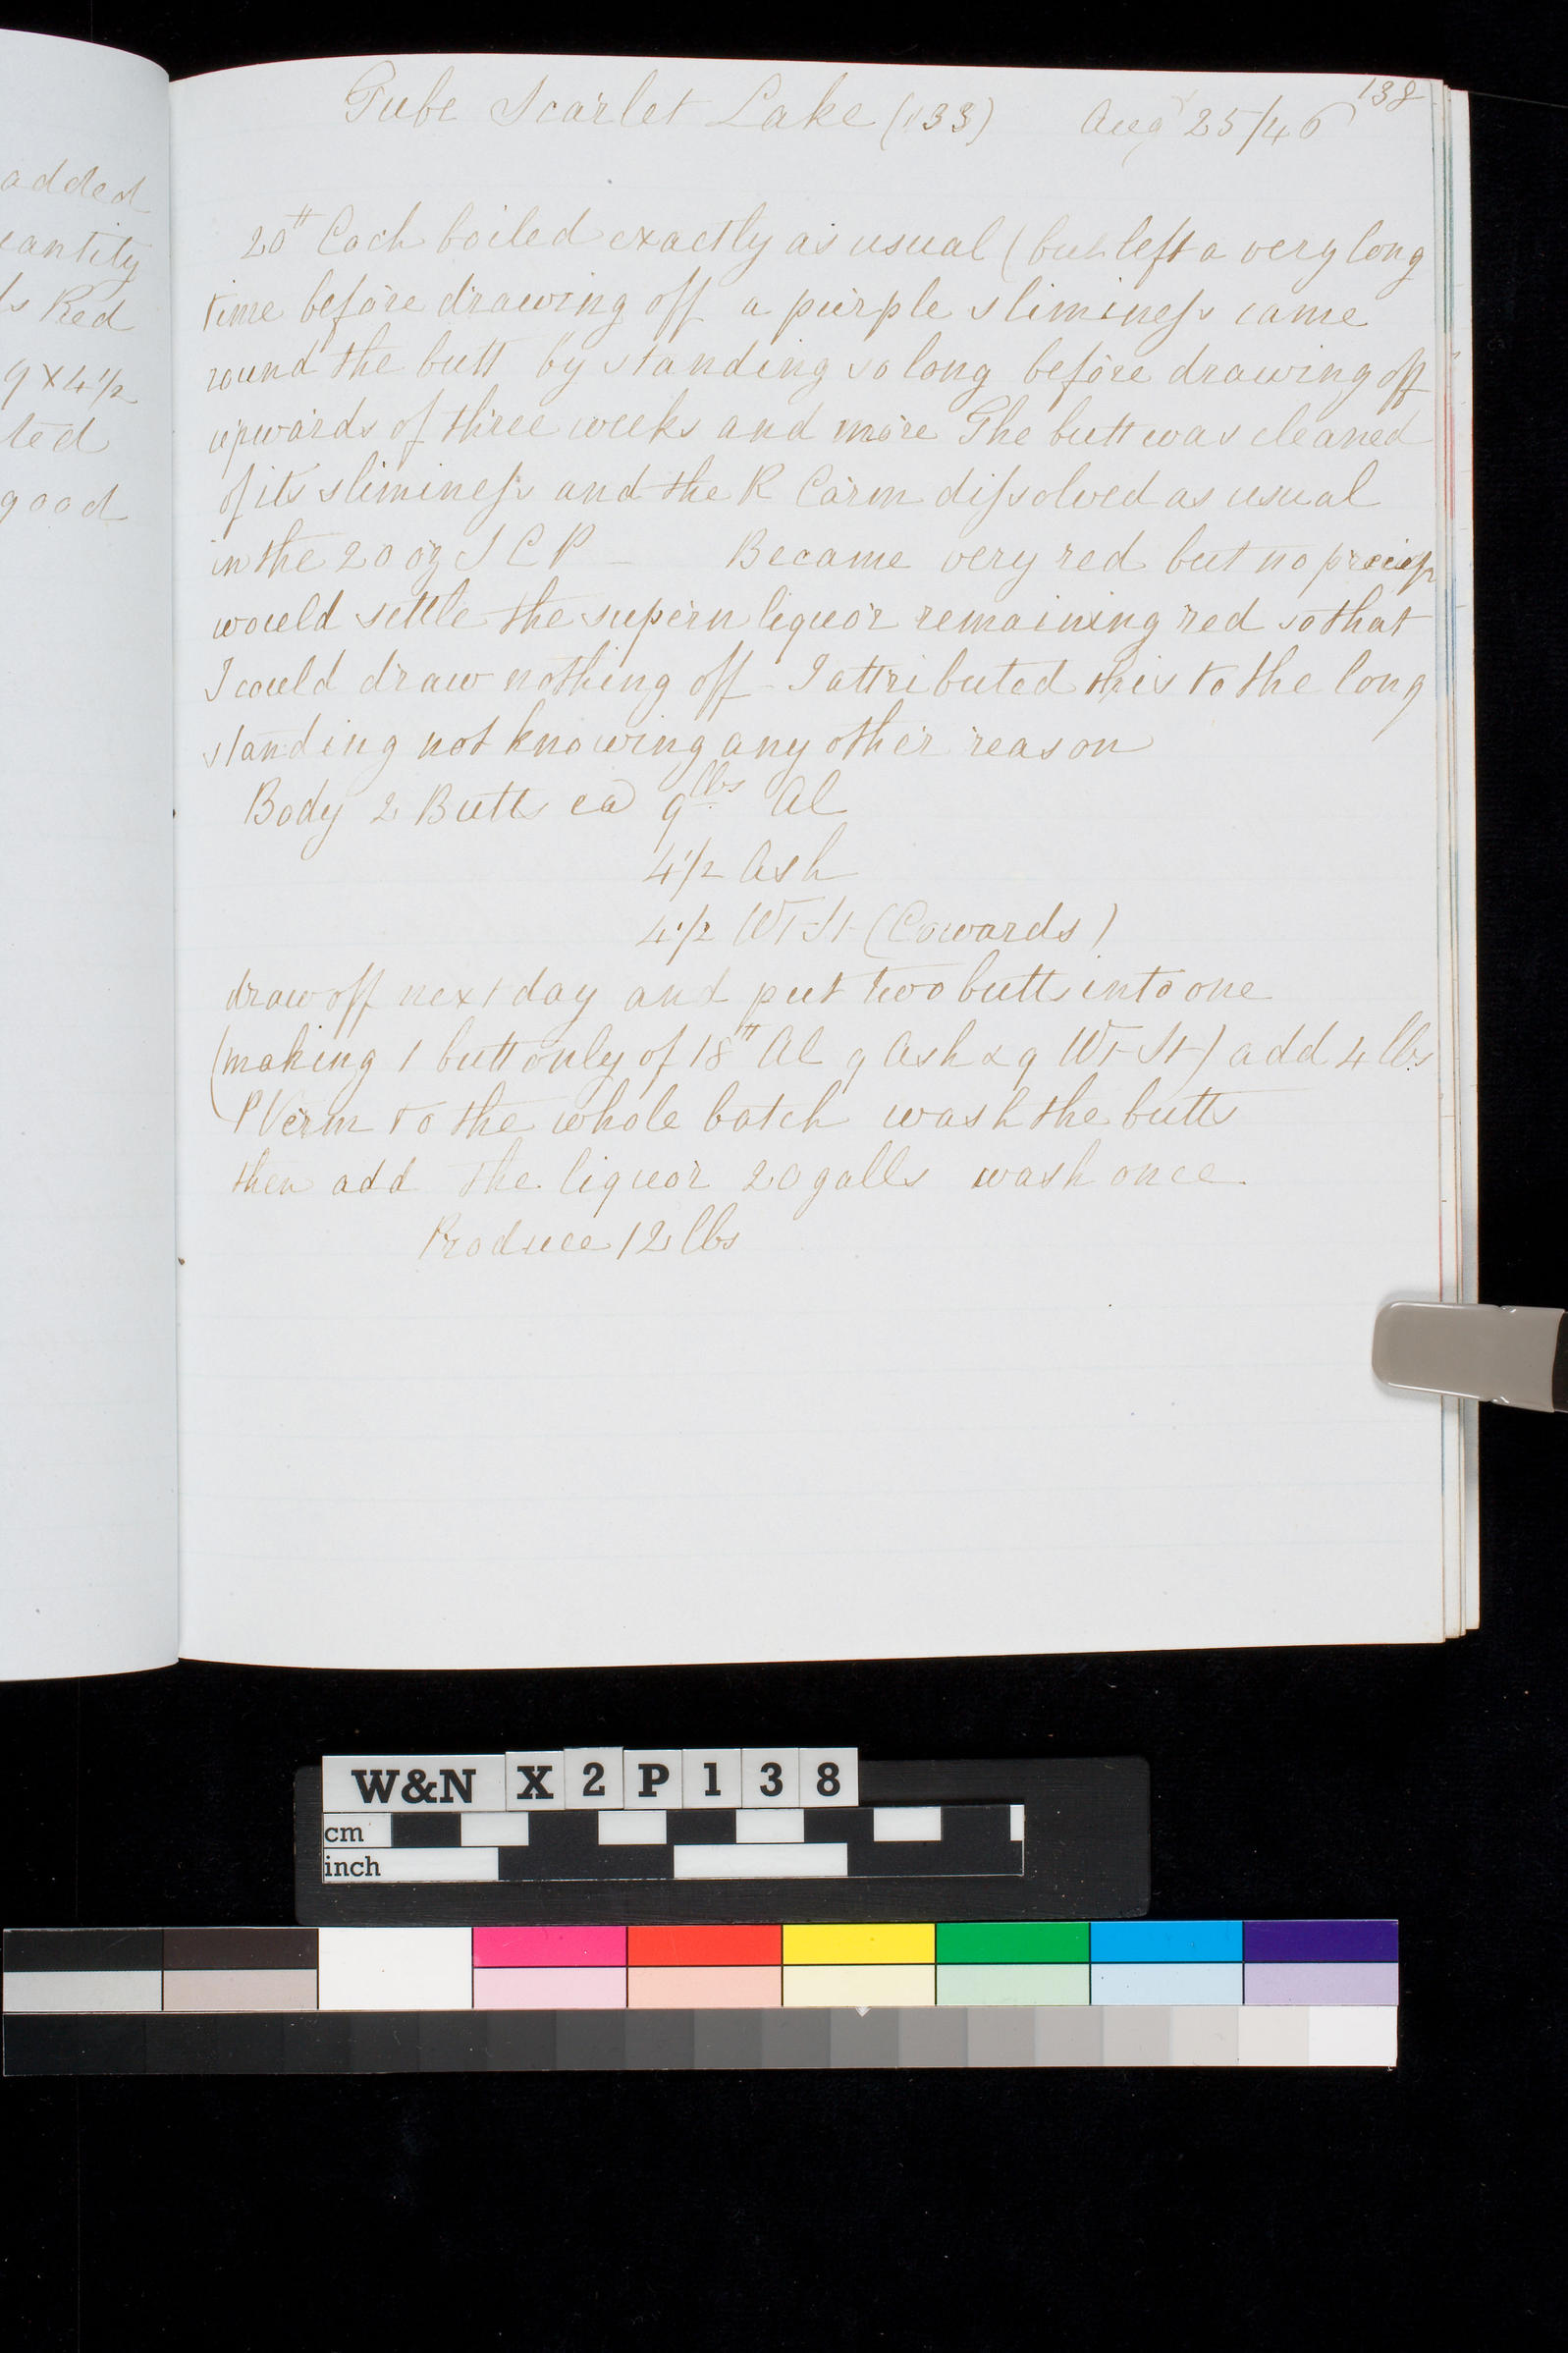 added
antity
s Red
9 x 4 1/2
ted
good
138
Tube Scarlet Lake (133) Aug 25/46
20" Coch boiled exactly as usual (but left a very long
time before drawing off a purple sliminess came
round the butt by standing so long before drawing off
upwards of three weeks and more The butt was cleaned
of its sliminess and the R Carm dissolved as usual
in the 20 oz S C P — Became very red but no precip
would settle the supern liquor remaining red so that
I could draw nothing off - I attributed this to the long
standing not knowing any other reason
Body 2 Butts ea 9 lbs Al
4 1/2 Ash
4 1/2 Wt St (Cowards)
draw off next day and put two butts into one
(making 1 butt only of 18" Al 9 Ash & 9 Wt St) add 4 lbs
P Verm to the whole batch wash the butts
then add the liquor 20 galls wash once.
Produce 12 lbs
W&N X 2 P 1 3 8
cm
inch